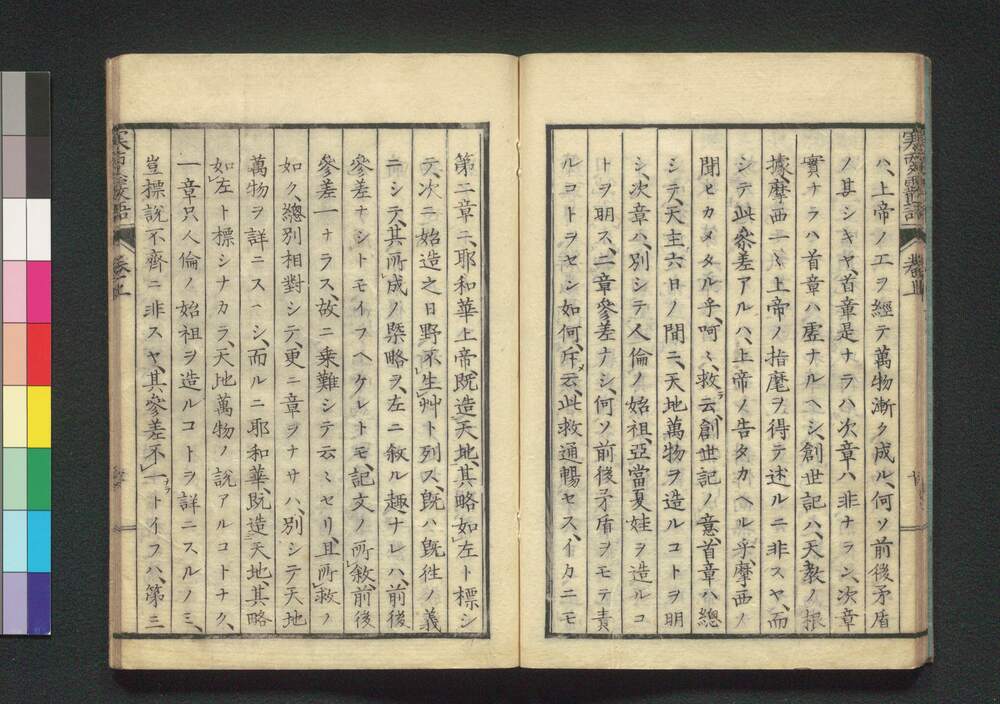 ハ、上帝ノ工ヲ經テ萬物漸ク成ル、何ソ前後矛盾
ノ甚シキヤ、首章是ナラハ次章ハ非ナラン、次章
實ナラハ首章ハ虚ナルヘシ、創世記ハ、天教ノ根
據、摩西一々上帝ノ指麾ヲ得テ述ルニ非スヤ、而
シテ此參差アルハ、上帝ノ告タカヘル乎、摩西ノ
聞ヒカメタル乎、呵々、救ラ云、創世記ノ意、首章ハ總
シテ、天主六日ノ間ニ、天地萬物ヲ造ルコトヲ明
シ、次章ハ、別シテ人倫ノ始祖、亞當夏娃ヲ造ルコ
トヲ明ス、二章參差ナシ、何ソ前後矛盾ヲモテ責
ルコトヲセン如何、斥メ云、此救通暢セス、イカニモ
第二章ニ、耶和華上帝、既造天地、其略如左ト標シ
テ、次ニ始造之日野不生艸ト列ス、既ハ既徃ノ義
ニシテ、其所成ノ槩略ヲ、左ニ敘ル趣ナレハ、前後
參差ナシトモイフヘケレトモ、記文ノ所敘前後
參差一ナラス、故ニ乗難シテ云々セリ、且所救ノ
如ク、總別相對シテ、更ニ章ヲナサハ、別シテ天地
萬物ヲ詳ニスヘシ、而ルニ耶和華、既造天地、其略
如左ト標シナカラ、天地萬物ノ説アルコトナク、
一章只人倫ノ始祖ヲ造ルコトヲ詳ニスルノミ、
豈標説不齊ニ非スヤ、其參差不一トイフハ、第三
卷上